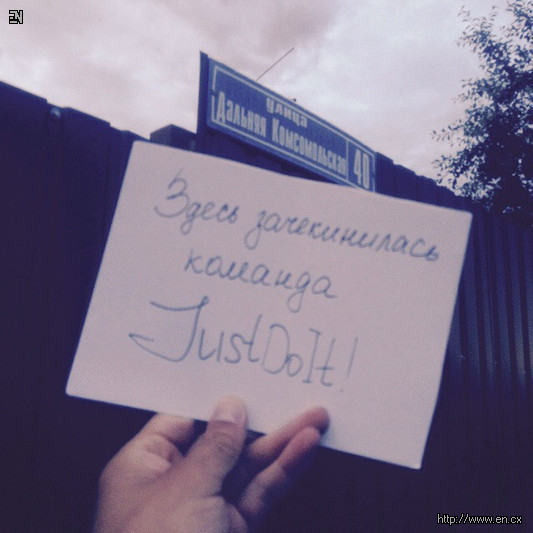 EN
улица
Дальняя Комсомольская 40
Здесь зачекинилась
команда
JustDoIt!
http://www.en.cx